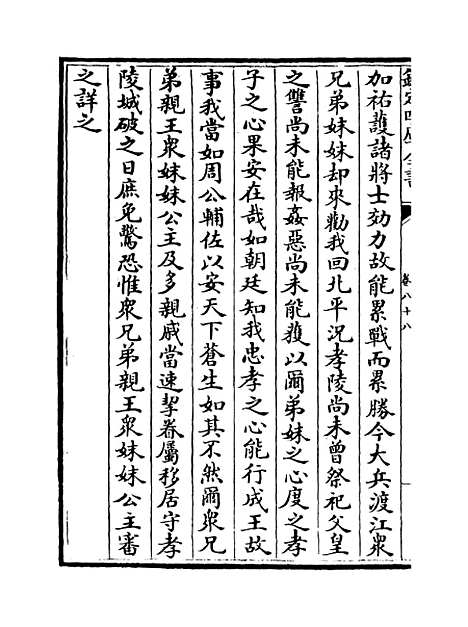 欽定四庫全書
卷八十八
加祐護諸將士効力故能累戰而累勝今大兵渡江衆
兄弟妹妹却來勸我回北平況孝陵尚未曾祭祀父皇
之讐尚未能報姦惡尚未能獲以爾弟妹之心度之孝
子之心果安在哉如朝廷知我忠孝之心能行成王故
事我當如周公輔佐以安天下蒼生如其不然爾衆兄
弟親王衆妹妹公主及多親戚當速挈眷屬移居守孝
陵城破之日庶免驚恐惟衆兄弟親王衆妹妹公主審
之詳之